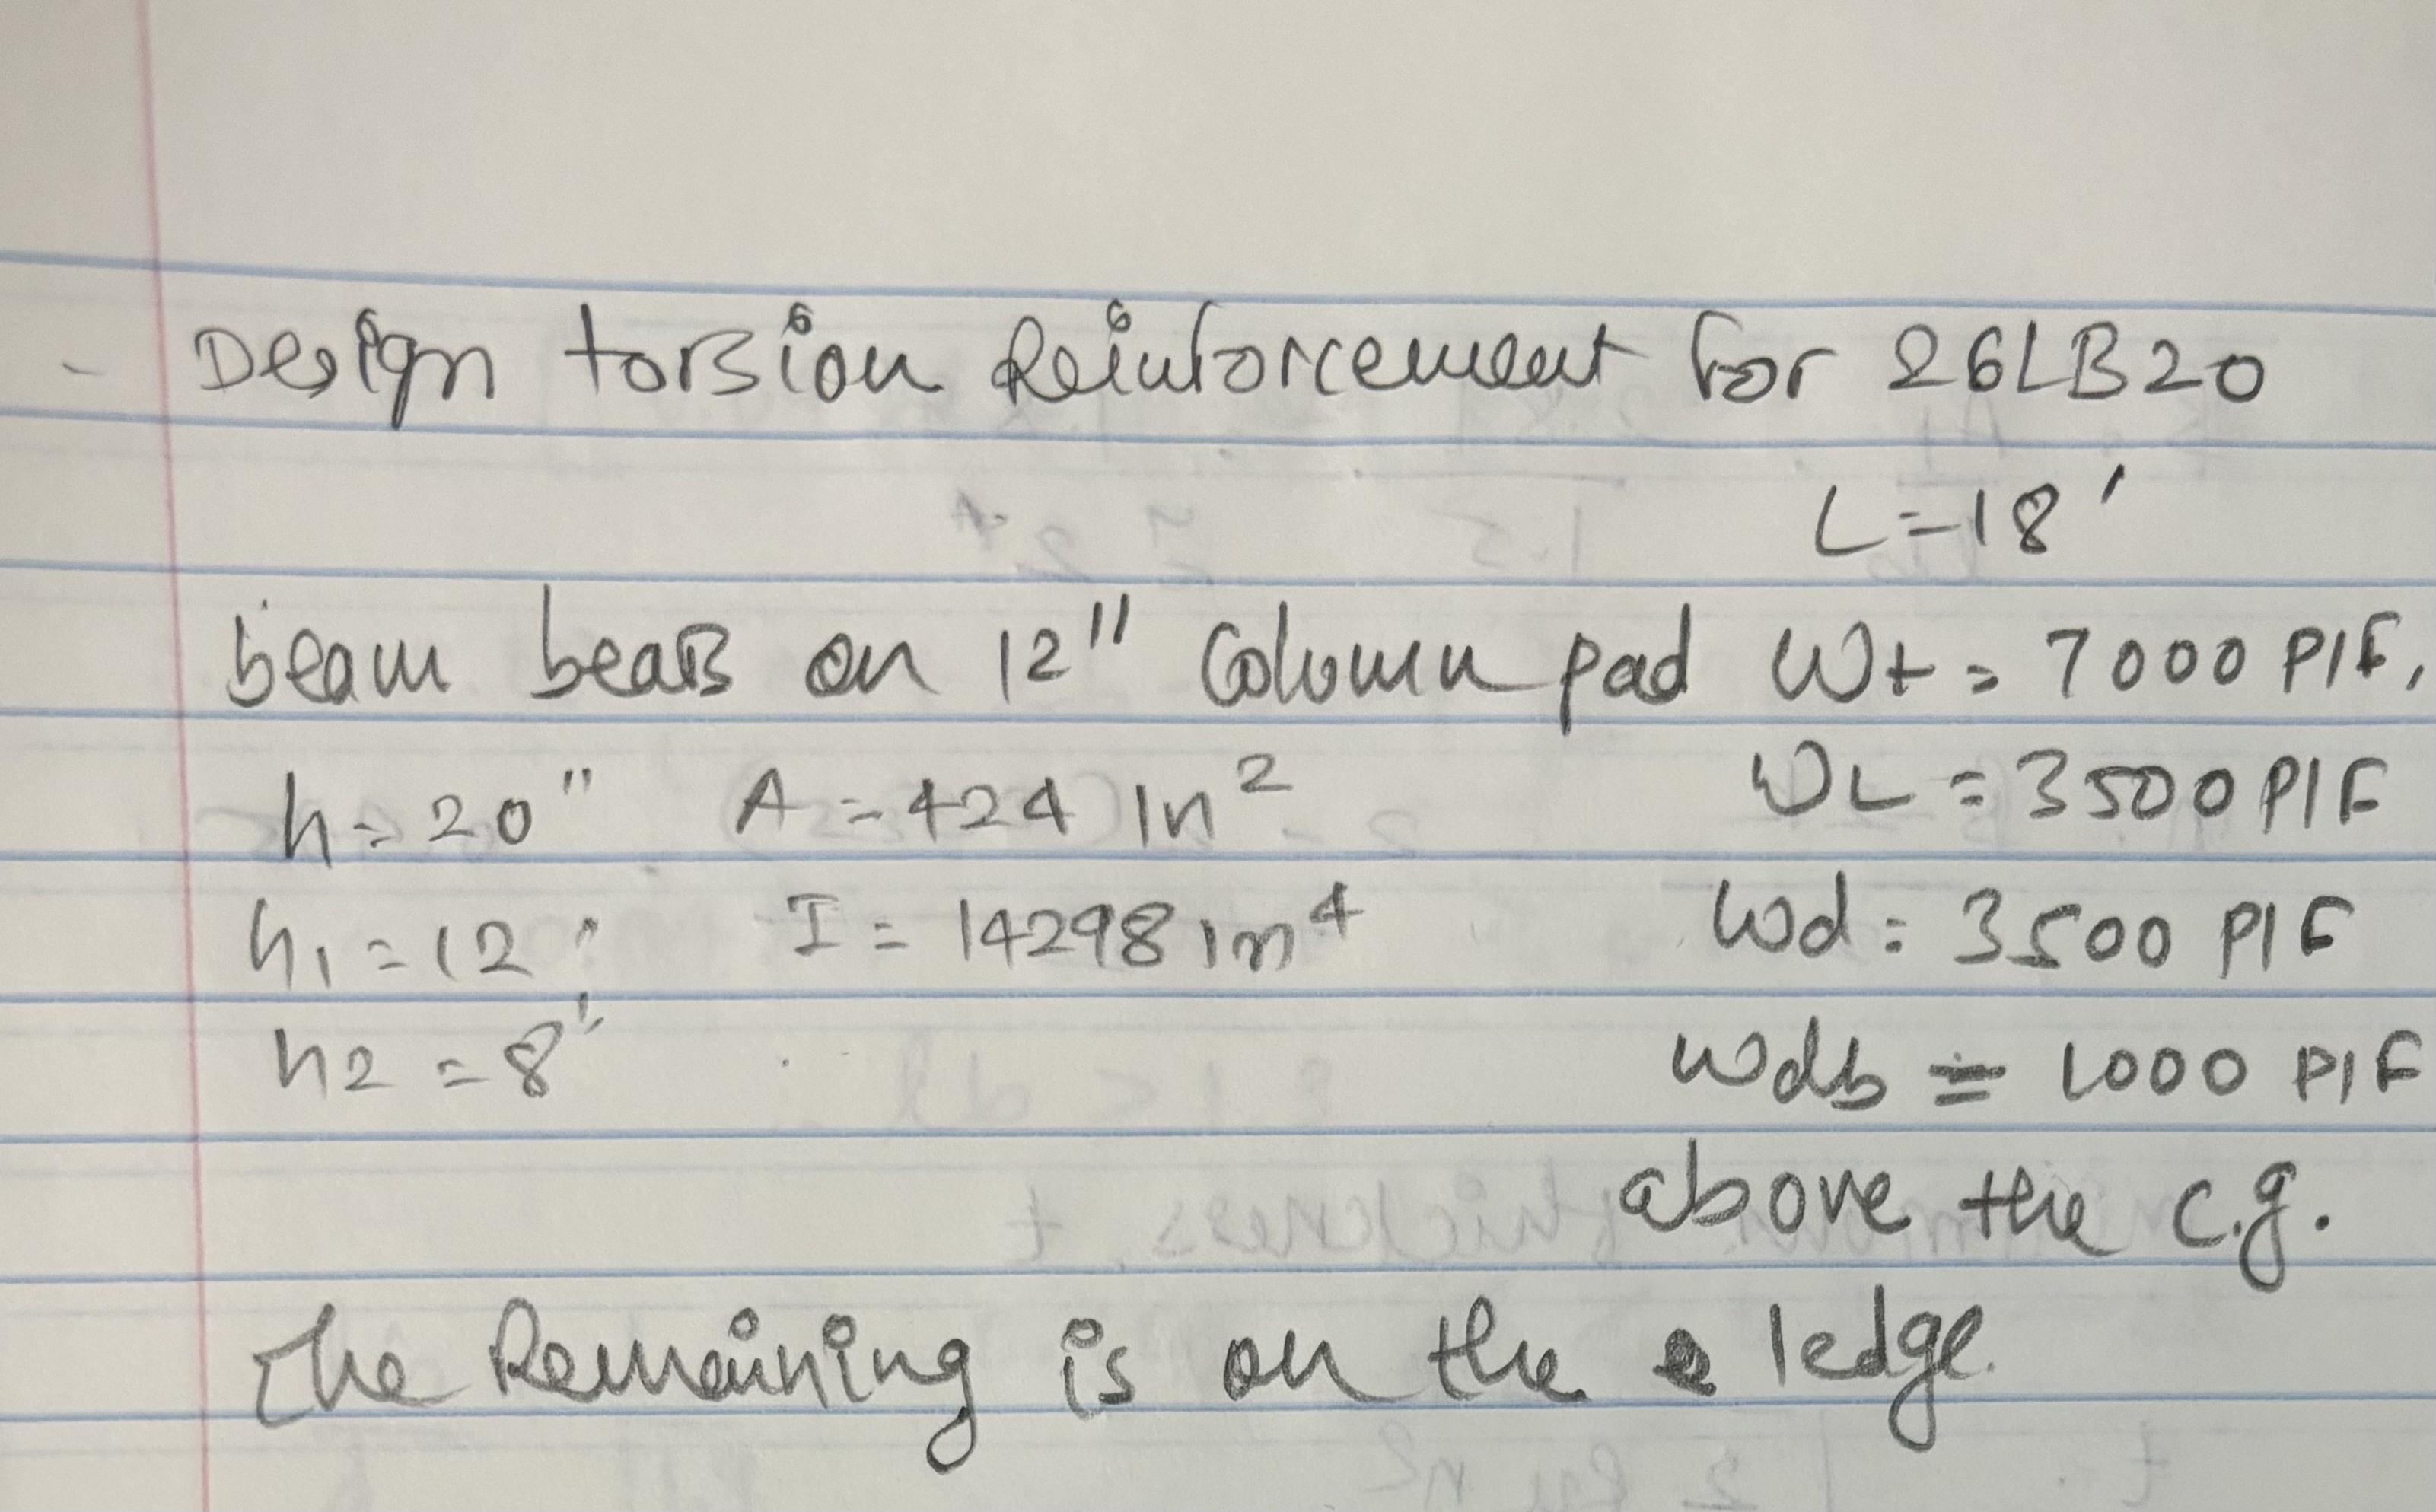 - Design torsion Reinforcement for 26LB20
L=18'
beam bears on 12" Column pad Wt = 7000 PlF,
h=20" A = 424 In² WL = 3500 PlF
h1 = 12" I = 14298 in⁴ Wd = 3500 PlF
h2 = 8" Wdb = 1000 PlF
above the c.g.
The Remaining is on the ledge.